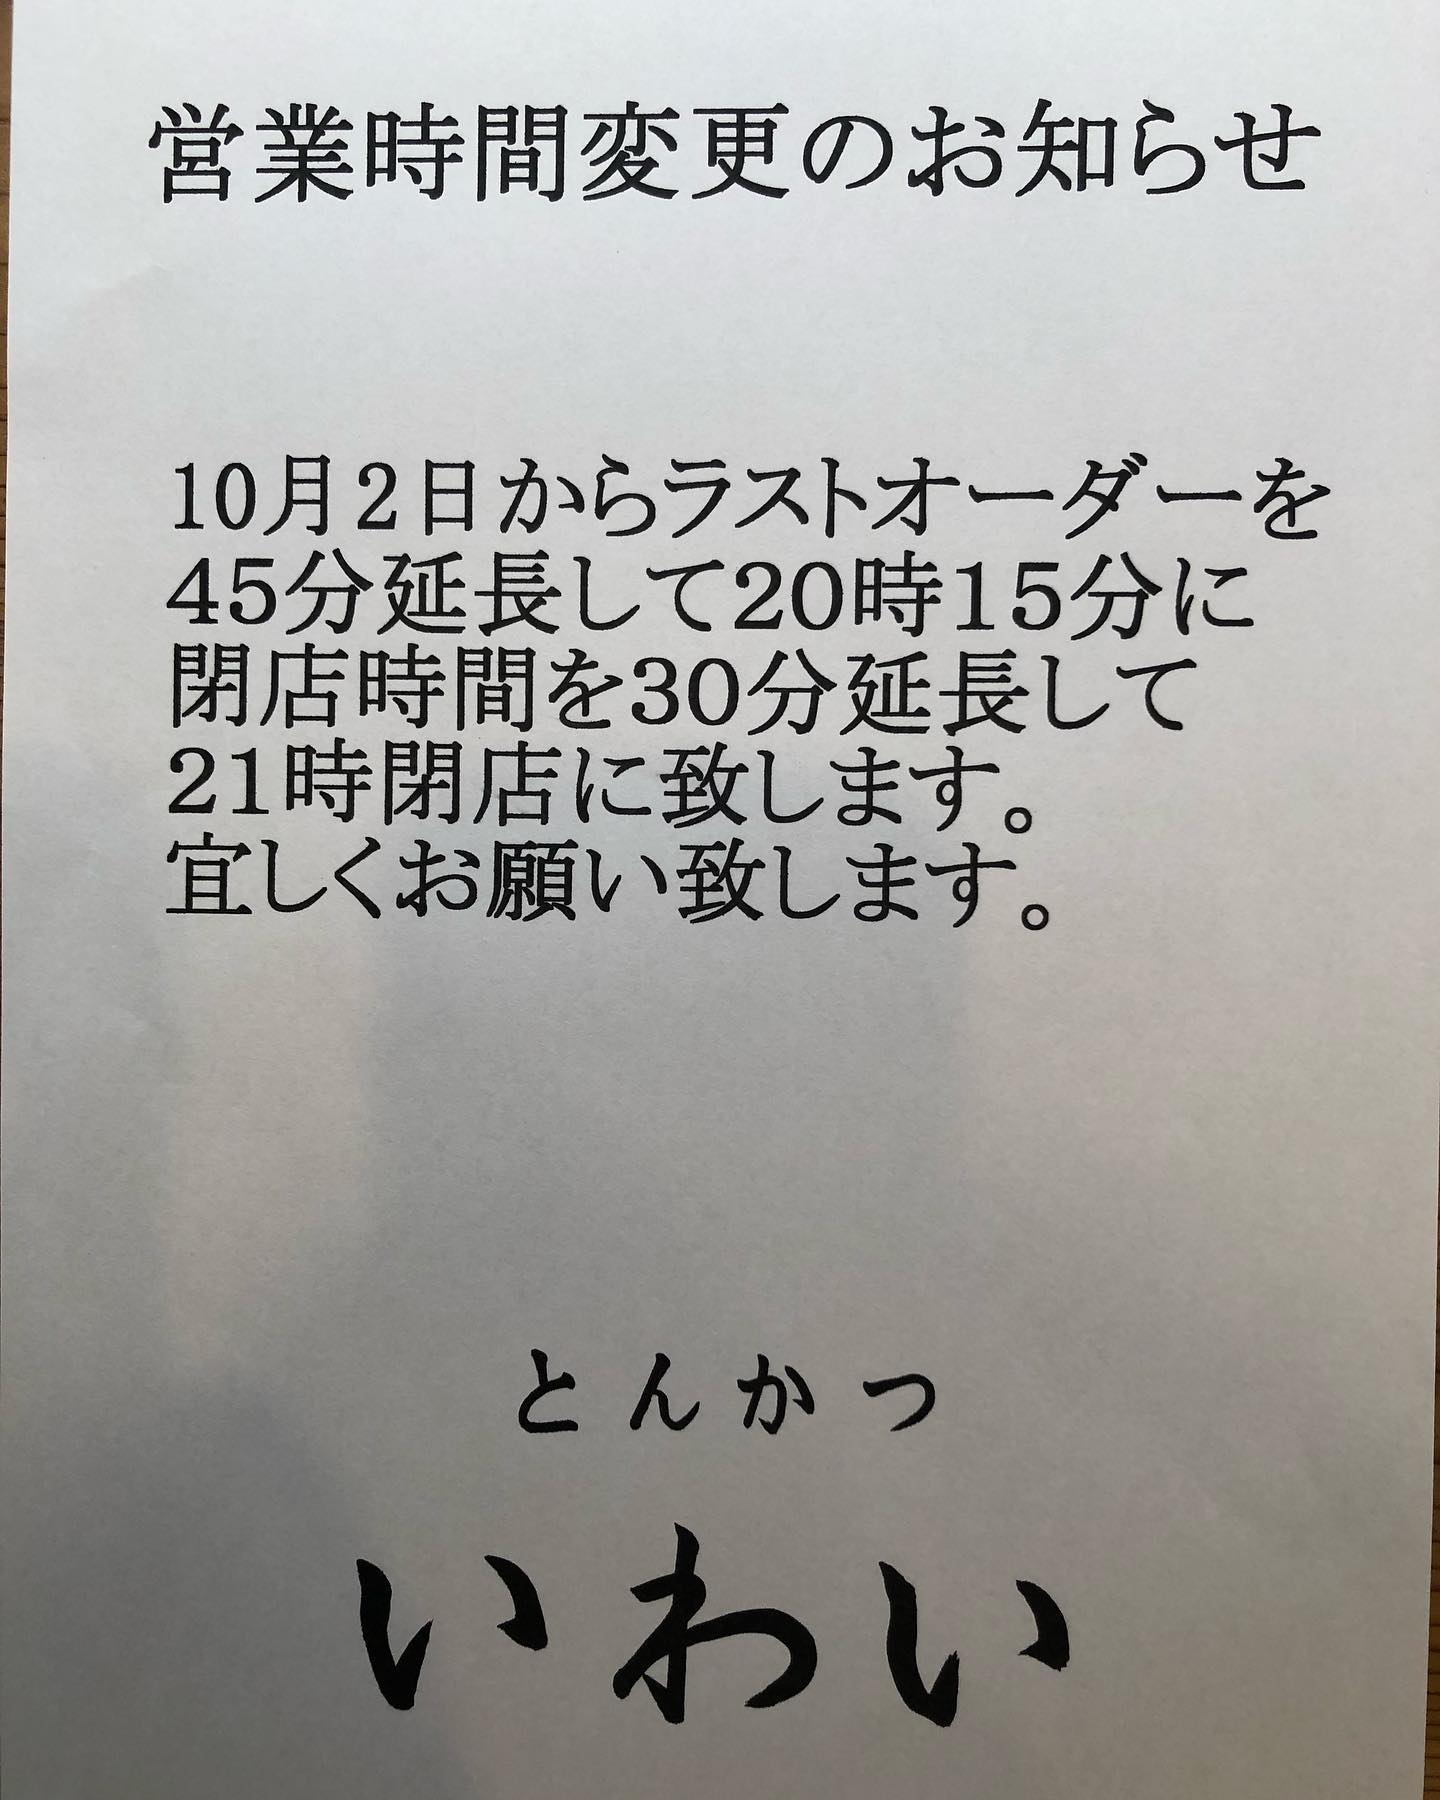 営業時間変更のお知らせ
10月2日からラストオーダーを
45分延長して20時15分に
閉店時間を30分延長して
21時閉店に致します。
宜しくお願い致します。
とんかつ
いわい